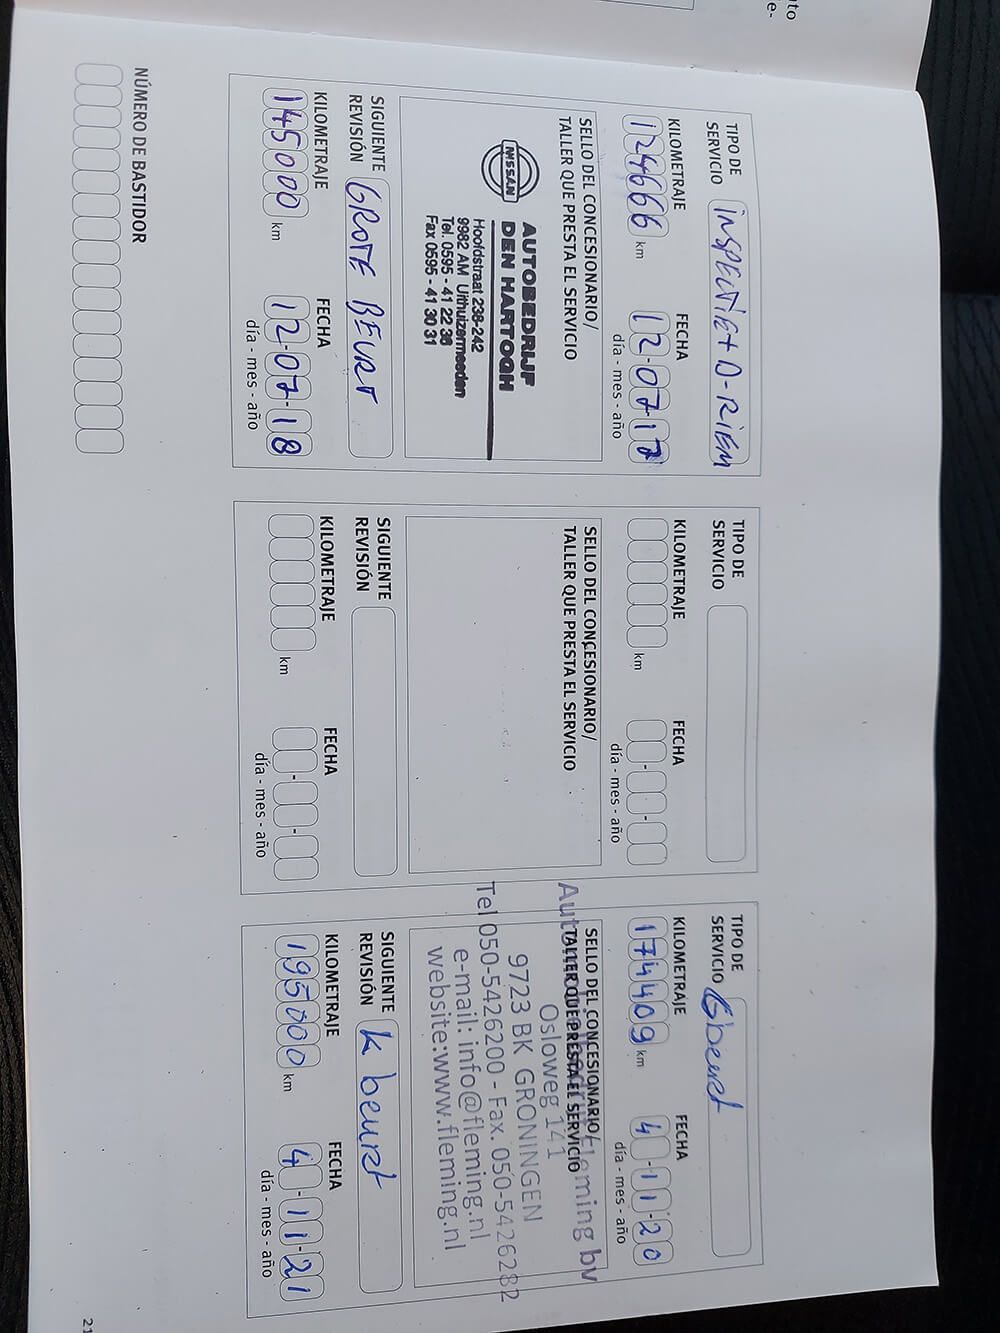 TIPO DE
SERVICIO
INSPECTIE + D-RIEM
KILOMETRAJE
124666 km
FECHA
12-07-17
día - mes - año
SELLO DEL CONCESIONARIO/
TALLER QUE PRESTA EL SERVICIO
NISSAN
AUTOBEDRIJF
DEN HARTOGH
Hoofdstraat 238-242
9982 AM Uithuizermeeden
Tel. 0595 - 41 22 38
Fax 0595 - 41 30 31
SIGUIENTE
REVISIÓN
GROTE BEURT
KILOMETRAJE
145000 km
FECHA
12-07-18
día - mes - año
TIPO DE
SERVICIO
KILOMETRAJE
km
FECHA
día - mes - año
SELLO DEL CONCESIONARIO/
TALLER QUE PRESTA EL SERVICIO
SIGUIENTE
REVISIÓN
KILOMETRAJE
km
FECHA
día - mes - año
TIPO DE
SERVICIO
G beurt
KILOMETRAJE
174409 km
FECHA
4-11-20
día - mes - año
SELLO DEL CONCESIONARIO/
TALLER QUE PRESTA EL SERVICIO
Automobielbedrijf Fleming bv
Osloweg 141
9723 BK GRONINGEN
Tel 050-5426200 - Fax. 050-5426282
e-mail: info@fleming.nl
website:www.fleming.nl
SIGUIENTE
REVISIÓN
k beurt
KILOMETRAJE
195000 km
FECHA
4-11-21
día - mes - año
NÚMERO DE BASTIDOR
21